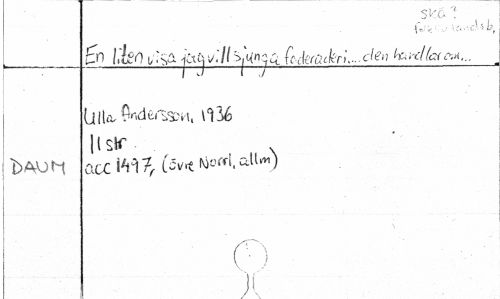 ska?
En liten visa jag vill sjunga faderackeri.... den handlar om...
Ulla Andersson, 1936
11 str
DAUM acc 1497, (Övre Norrl, allm)